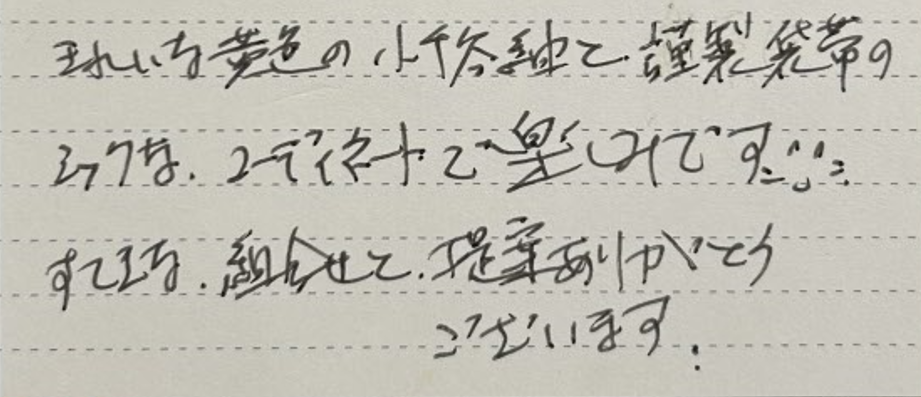 きれいな黄色の小千谷紬と、謹製袋帯の
シックな、コーディネートで楽しみです
すてきな、組合せと、提案ありがとう
ございます。